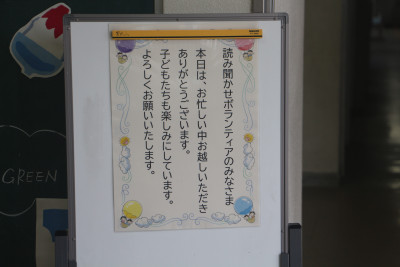 読み聞かせボランティアのみなさま
本日は、お忙しい中お越しいただき
ありがとうございます。
子どもたちも楽しみにしています。
よろしくお願いいたします。
GREEN